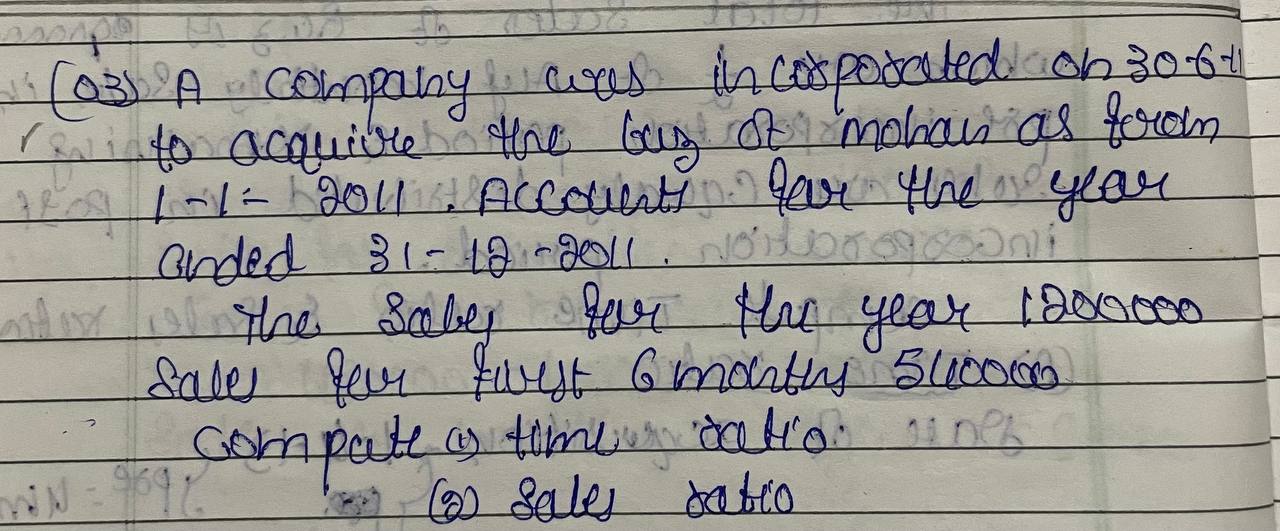 (03) A company was incorporated on 30-6-11
to acquire the buz of mohan as from
1-1- 2011. Accounts for the year
ended 31-12-2011.
The Sales for the year 1200000
Sales for first 6 months 540000
Compute (1) time ratio
(2) Sales ratio